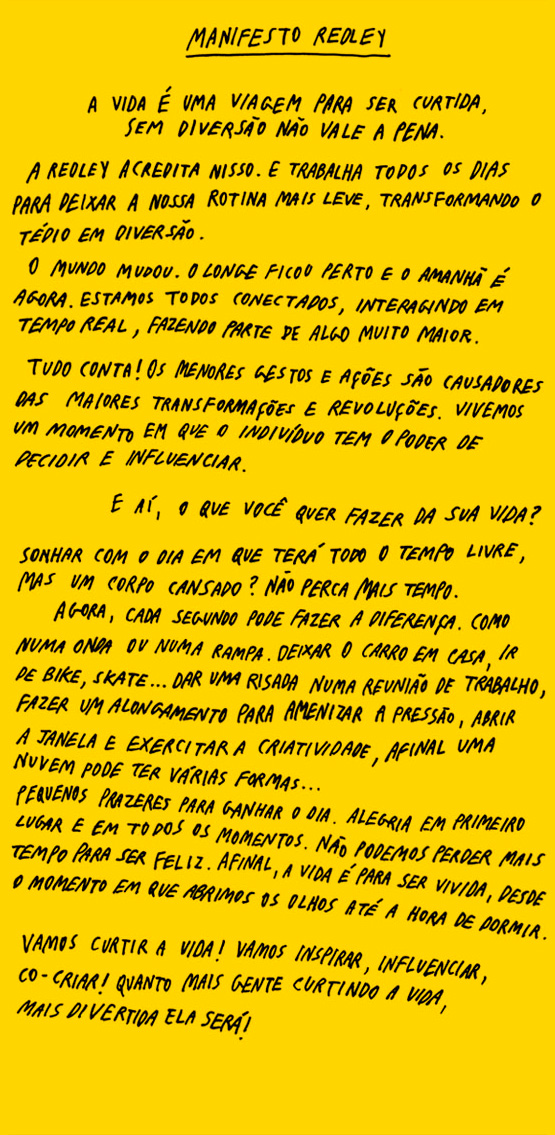 MANIFESTO REDLEY
A VIDA É UMA VIAGEM PARA SER CURTIDA,
SEM DIVERSÃO NÃO VALE A PENA.
A REDLEY ACREDITA NISSO. E TRABALHA TODOS OS DIAS
PARA DEIXAR A NOSSA ROTINA MAIS LEVE, TRANSFORMANDO O
TÉDIO EM DIVERSÃO.
O MUNDO MUDOU. O LONGE FICOU PERTO E O AMANHÃ É
AGORA. ESTAMOS TODOS CONECTADOS, INTERAGINDO EM
TEMPO REAL, FAZENDO PARTE DE ALGO MUITO MAIOR.
TUDO CONTA! OS MENORES GESTOS E AÇÕES SÃO CAUSADORES
DAS MAIORES TRANSFORMAÇÕES E REVOLUÇÕES. VIVEMOS
UM MOMENTO EM QUE O INDIVÍDUO TEM O PODER DE
DECIDIR E INFLUENCIAR.
E AÍ, O QUE VOCÊ QUER FAZER DA SUA VIDA?
SONHAR COM O DIA EM QUE TERÁ TODO O TEMPO LIVRE,
MAS UM CORPO CANSADO? NÃO PERCA MAIS TEMPO.
AGORA, CADA SEGUNDO PODE FAZER A DIFERENÇA. COMO
NUMA ONDA OU NUMA RAMPA. DEIXAR O CARRO EM CASA, IR
DE BIKE, SKATE... DAR UMA RISADA NUMA REUNIÃO DE TRABALHO,
FAZER UM ALONGAMENTO PARA AMENIZAR A PRESSÃO, ABRIR
A JANELA E EXERCITAR A CRIATIVIDADE, AFINAL UMA
NUVEM PODE TER VÁRIAS FORMAS...
PEQUENOS PRAZERES PARA GANHAR O DIA. ALEGRIA EM PRIMEIRO
LUGAR E EM TODOS OS MOMENTOS. NÃO PODEMOS PERDER MAIS
TEMPO PARA SER FELIZ. AFINAL, A VIDA É PARA SER VIVIDA, DESDE
O MOMENTO EM QUE ABRIMOS OS OLHOS ATÉ A HORA DE DORMIR.
VAMOS CURTIR A VIDA! VAMOS INSPIRAR, INFLUENCIAR,
CO-CRIAR! QUANTO MAIS GENTE CURTINDO A VIDA,
MAIS DIVERTIDA ELA SERÁ!